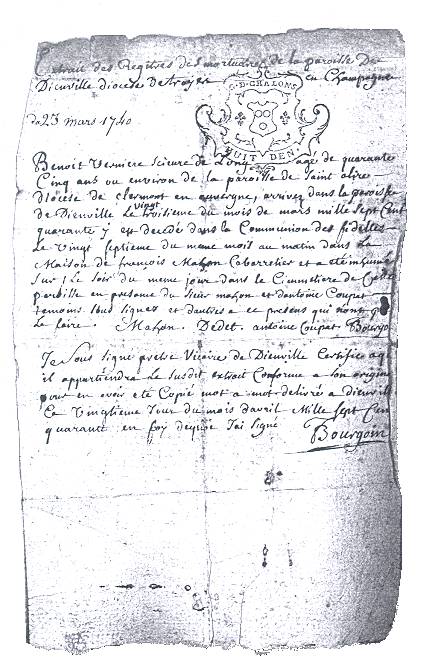 Extrait des Registres des mortuaires de la paroisse De
Dienville diocese de troyes en Champagne
G·D·CHALONS
HUIT DEN
du 23 mars 1740
Benoit Verniere scieur de Long agé de quarante
Cinq ans ou environ de la paroisse de Saint
diocese de clermont en auvergne, arrivé dans la paroisse
vingt
de Dienville Le troitieme du mois de mars mille sept Cent
quarante y est decedé dans la Communion des fidelles
Le vingt septieme du meme mois au matin dans la
Maison de françois Mahon Cabarretier et a été inhumé
sur Le soir du meme jour dans le Cimmetiere de
paroisse en presence du sieur mahon et dantoine Coupat
temoins sous signés et dautres a ce presens qui nont
Le faire. Mahon. Dedet. antoine Coupat. Bourgo
Je Sous signé pretre Vicaire de Dienville Certifie a q
il appartiendra Le susdit extrait Conforme a son origina
pour en avoir eté Copié mot a mot delivré a dienville
Ce Vingtieme Jour du mois davril Mille sept Cen
quarante en foy dequoy Jai signé
Bourgoin